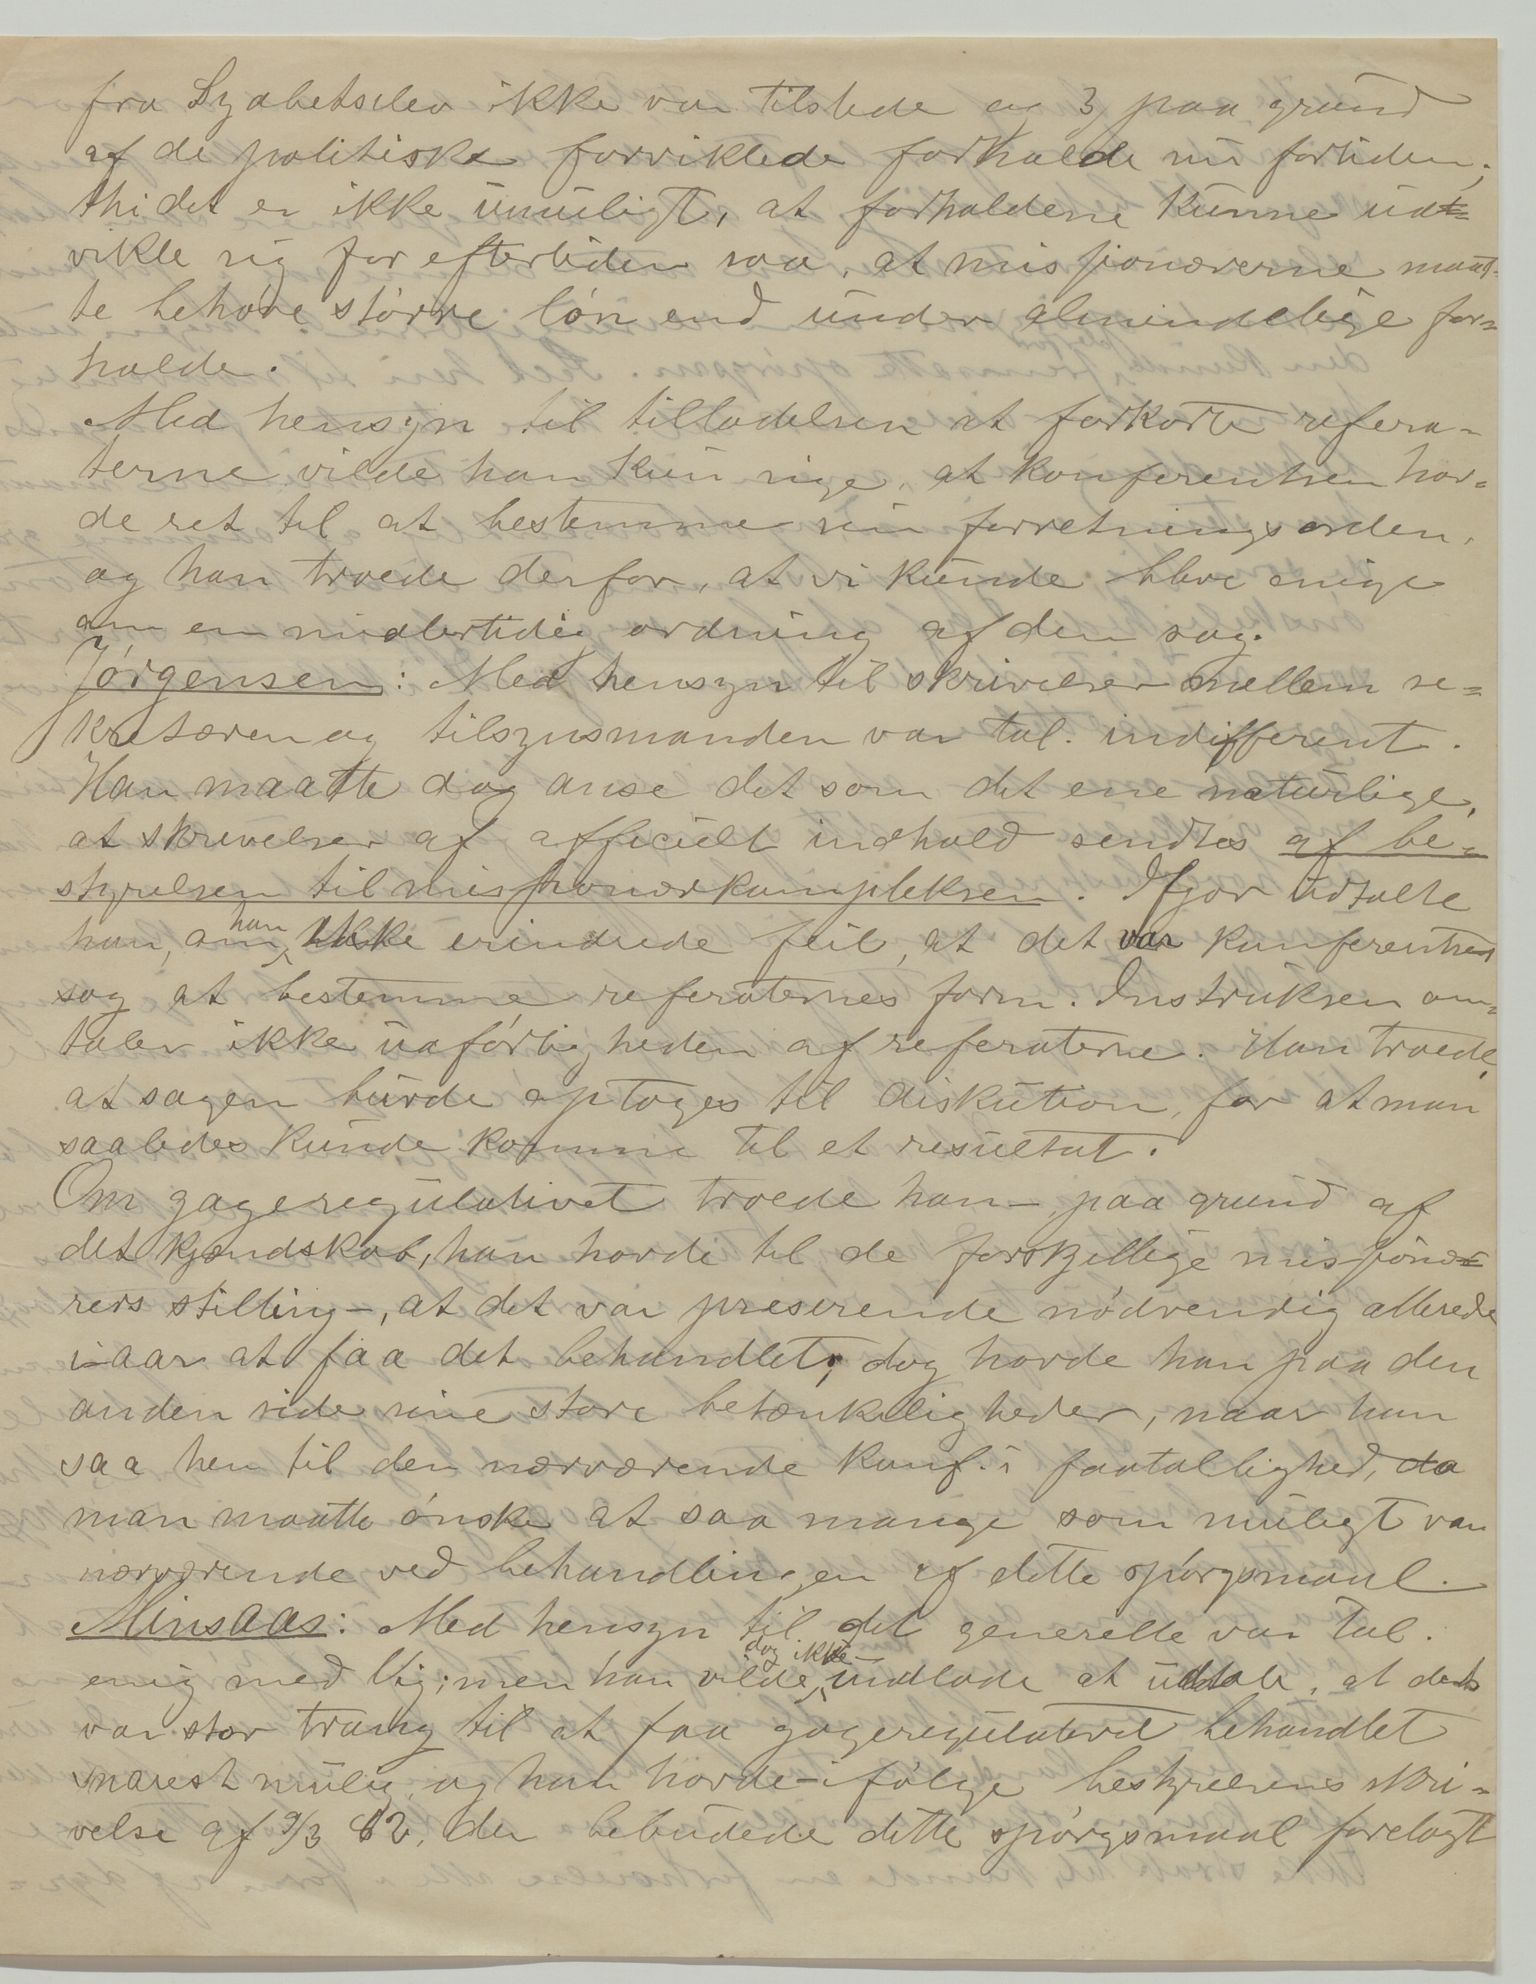 fra Lyabetselev ikke var tilstede og 3, paa grund
af de politiske forviklede forholde nu fortiden;
thi det er ikke umuligt, at forholdene kunne ud-
vikle sig for eftertiden saa, at missionærerne maat-
te behøve større løn end under almindelige for-
holde.
Med hensyn til tilladelsen at forkorte refera-
terne vilde han kun sige, at konferentsen hav-
de ret til at bestemme sin forretningsorden,
og han troede derfor, at vi kunde blive enige
om en midlertidig ordning af den sag.
Jørgensen: Med hensyn til skrivelser mellem se-
kretæren og tilsynsmanden var tal. indifferent.
Han maatte dog anse det som det ene naturlige,
at skrivelser af officielt indhold sendtes af be-
styrelsen til missionærkompleksen. Ifjor udtalte
han, om han ikke erindrede feil, at det var konferentsens
sag at bestemme referaternes form. Instruksen om-
taler ikke udførligheden af referaterne. Han troede,
at sagen burde optages til diskution, for at man
saaledes kunde komme til et resultat.
Om gageregulativet troede han –, paa grund af
det kjendskab, han havde til de forskjellige missionæ-
rers stilling –, at det var preserende nødvendig allerede
i aar at faa det behandlet; dog havde han paa den
anden side sine store betænkeligheder, naar han
saa hen til den nærværende konf.s faatallighed, da
man maatte ønske at saa mange som muligt var
nærværende ved behandlingen af dette spørgsmaal.
Minsaas: Med hensyn til det generelle var tal.
enig med Vig; men han vilde dog ikke undlade at udtale, at det
var stor trang til at faa gageregulativet behandlet
snarest mulig, og han havde – ifølge bestyrelsens skri-
velse af 9/3 82, der bebudede dette spørgsmaal forelagt